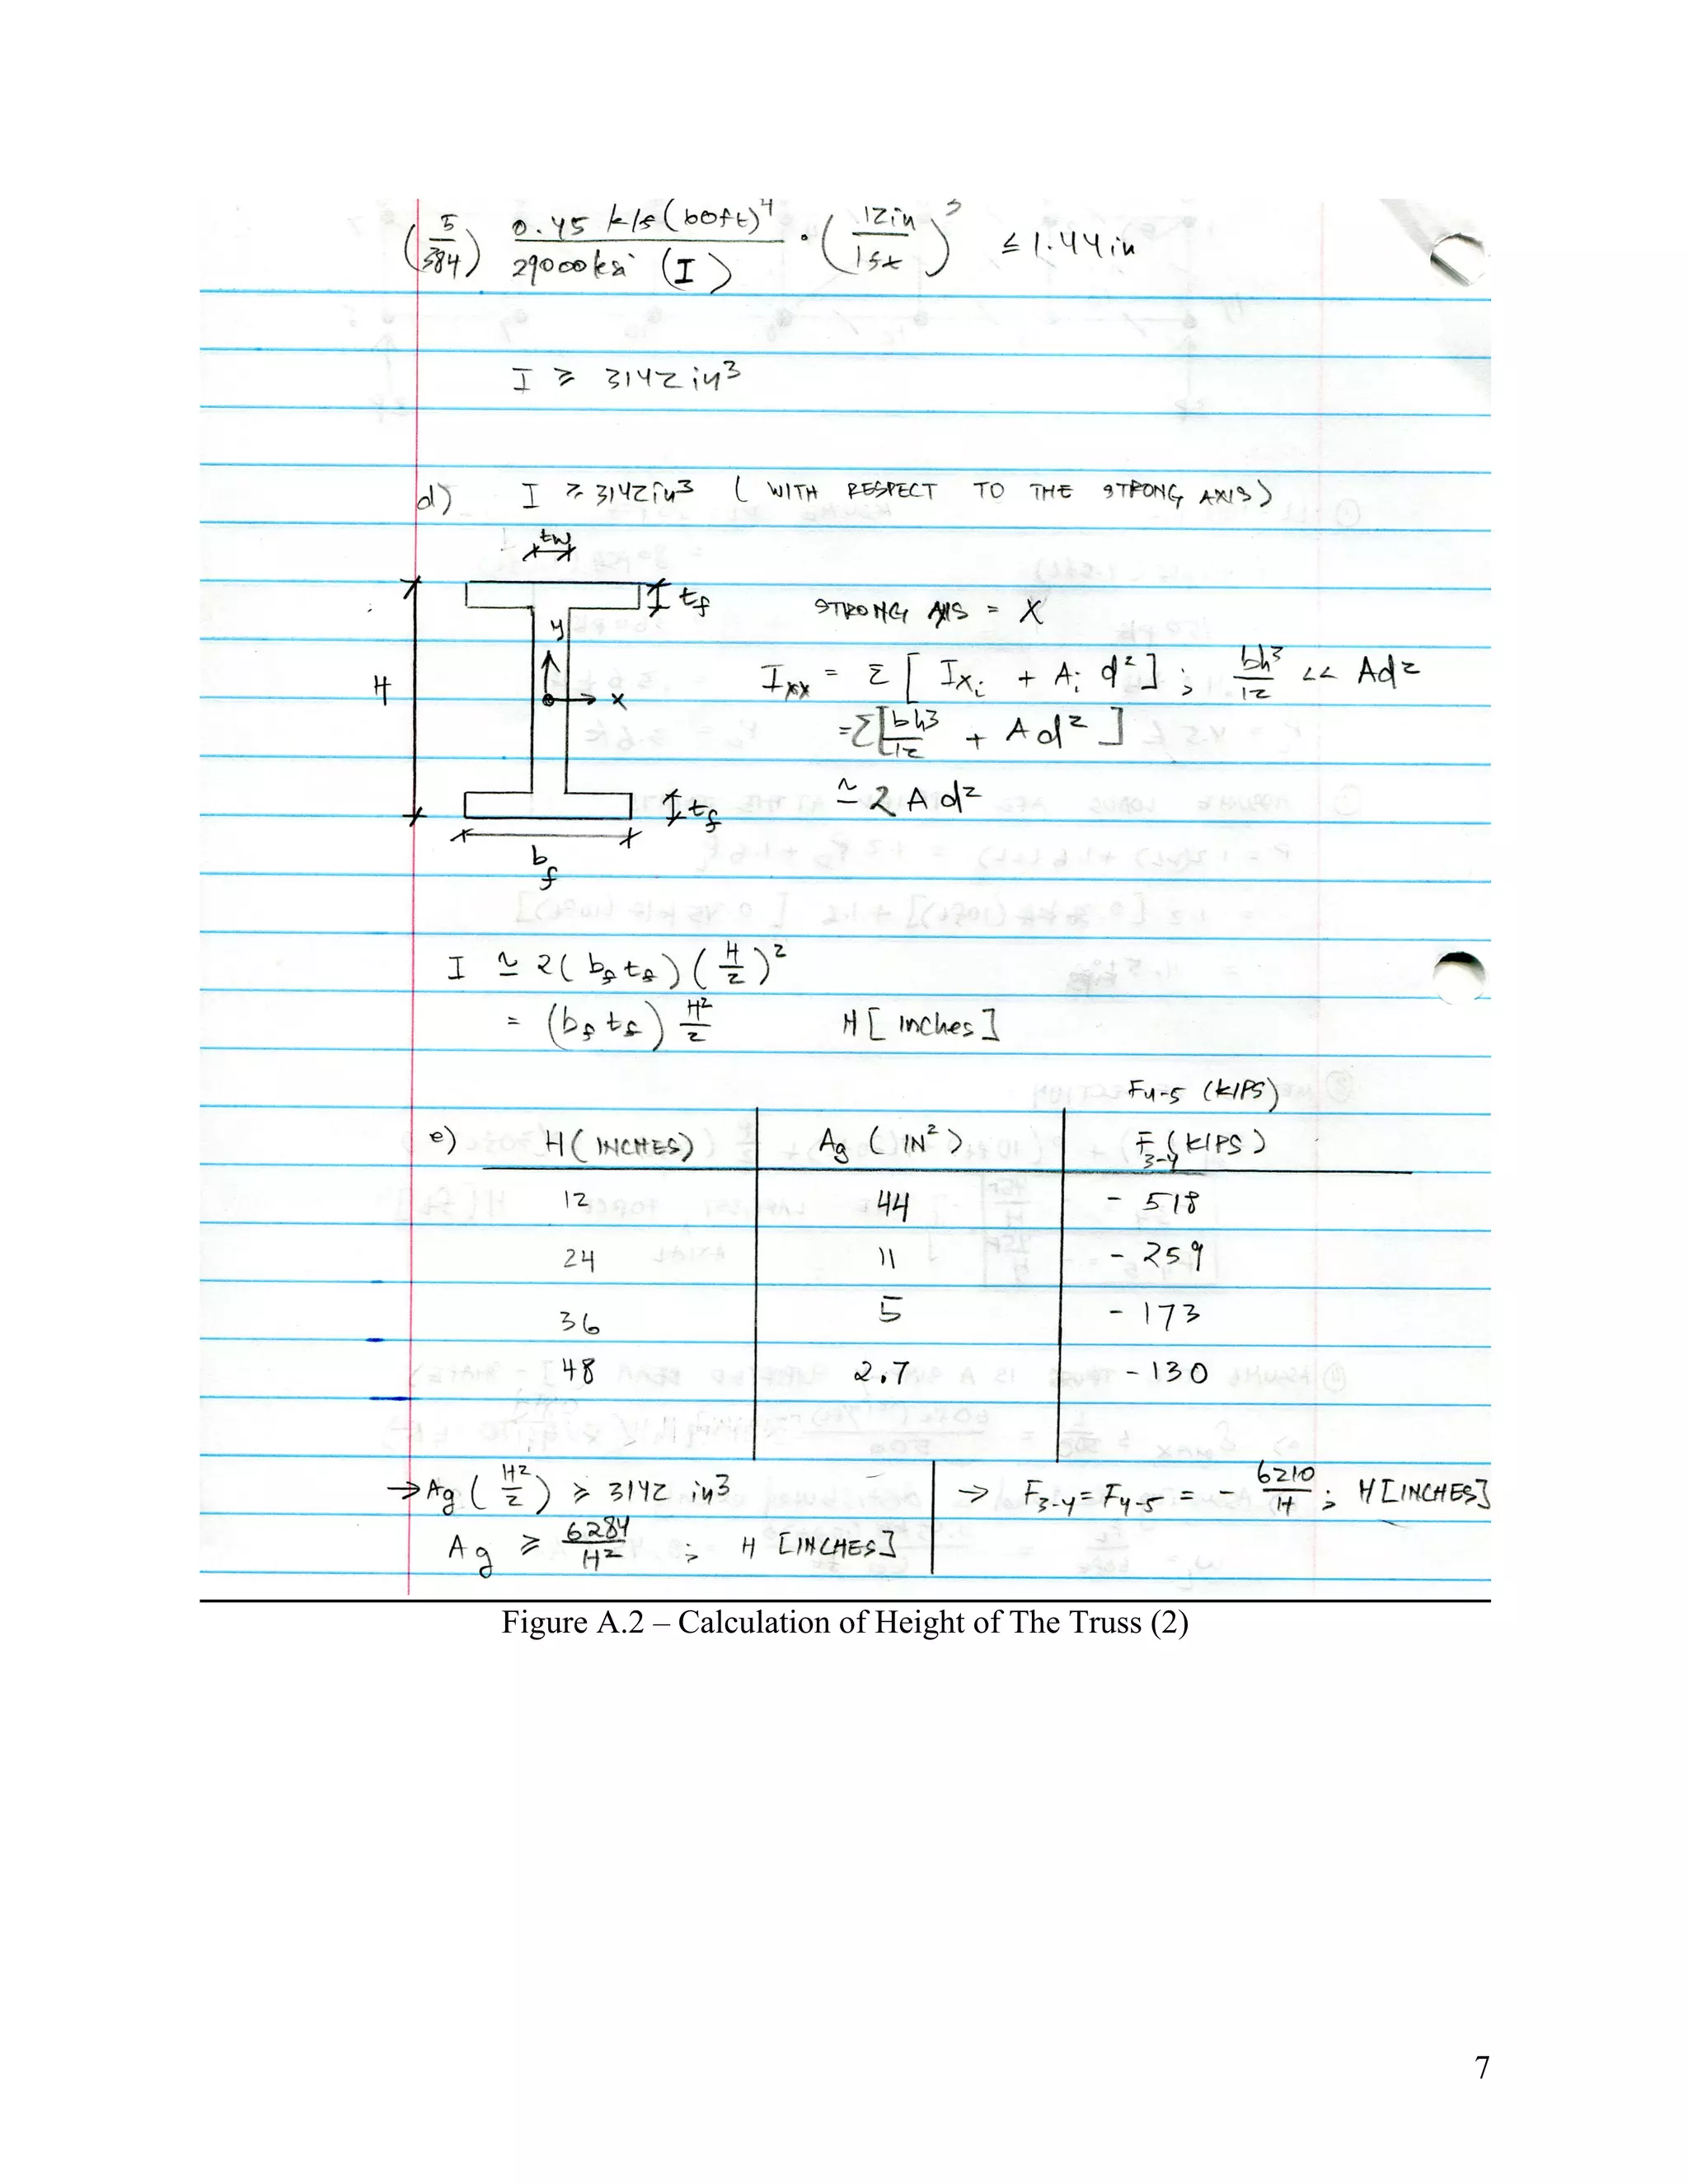 (5/384) 0.45 k/f (60ft)⁴ / 29000ksi (I) · (12in / 1ft)³ ≤ 1.44in
I ≥ 3142 in³
d) I ≥ 3142in³ ( WITH RESPECT TO THE STRONG AXIS)
tw
tf
STRONG AXIS = X
y
H
x
Ixx = Σ [ Ixi + Ai d² ] ; bh³/12 << Ad²
=Σ[bh³/12 + Ad² ]
≃ 2 A d²
tf
bf
I ≃ 2( bf tf ) ( H/2 )²
= (bf tf) H²/2 H [ inches ]
F4-5 (KIPS)
e) H ( INCHES) Ag ( IN² ) F3-4 (KIPS )
12 44 - 518
24 11 - 259
36 5 - 173
48 2.7 - 130
→ Ag ( H²/2 ) ≥ 3142 in³ → F3-4 = F4-5 = - 6210/H ; H [INCHES]
Ag ≥ 6284/H² ; H [INCHES]
Figure A.2 – Calculation of Height of The Truss (2)
7